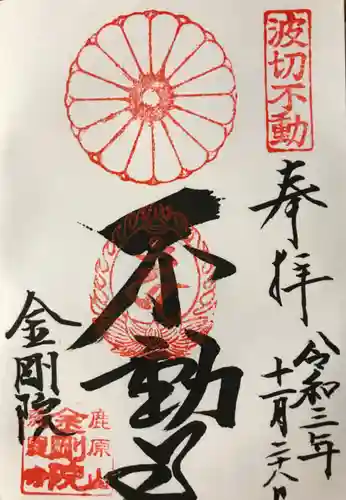 波切不動
奉拝
令和三年
十一月二十八日
不動尊
金剛院
鹿原山
金剛院